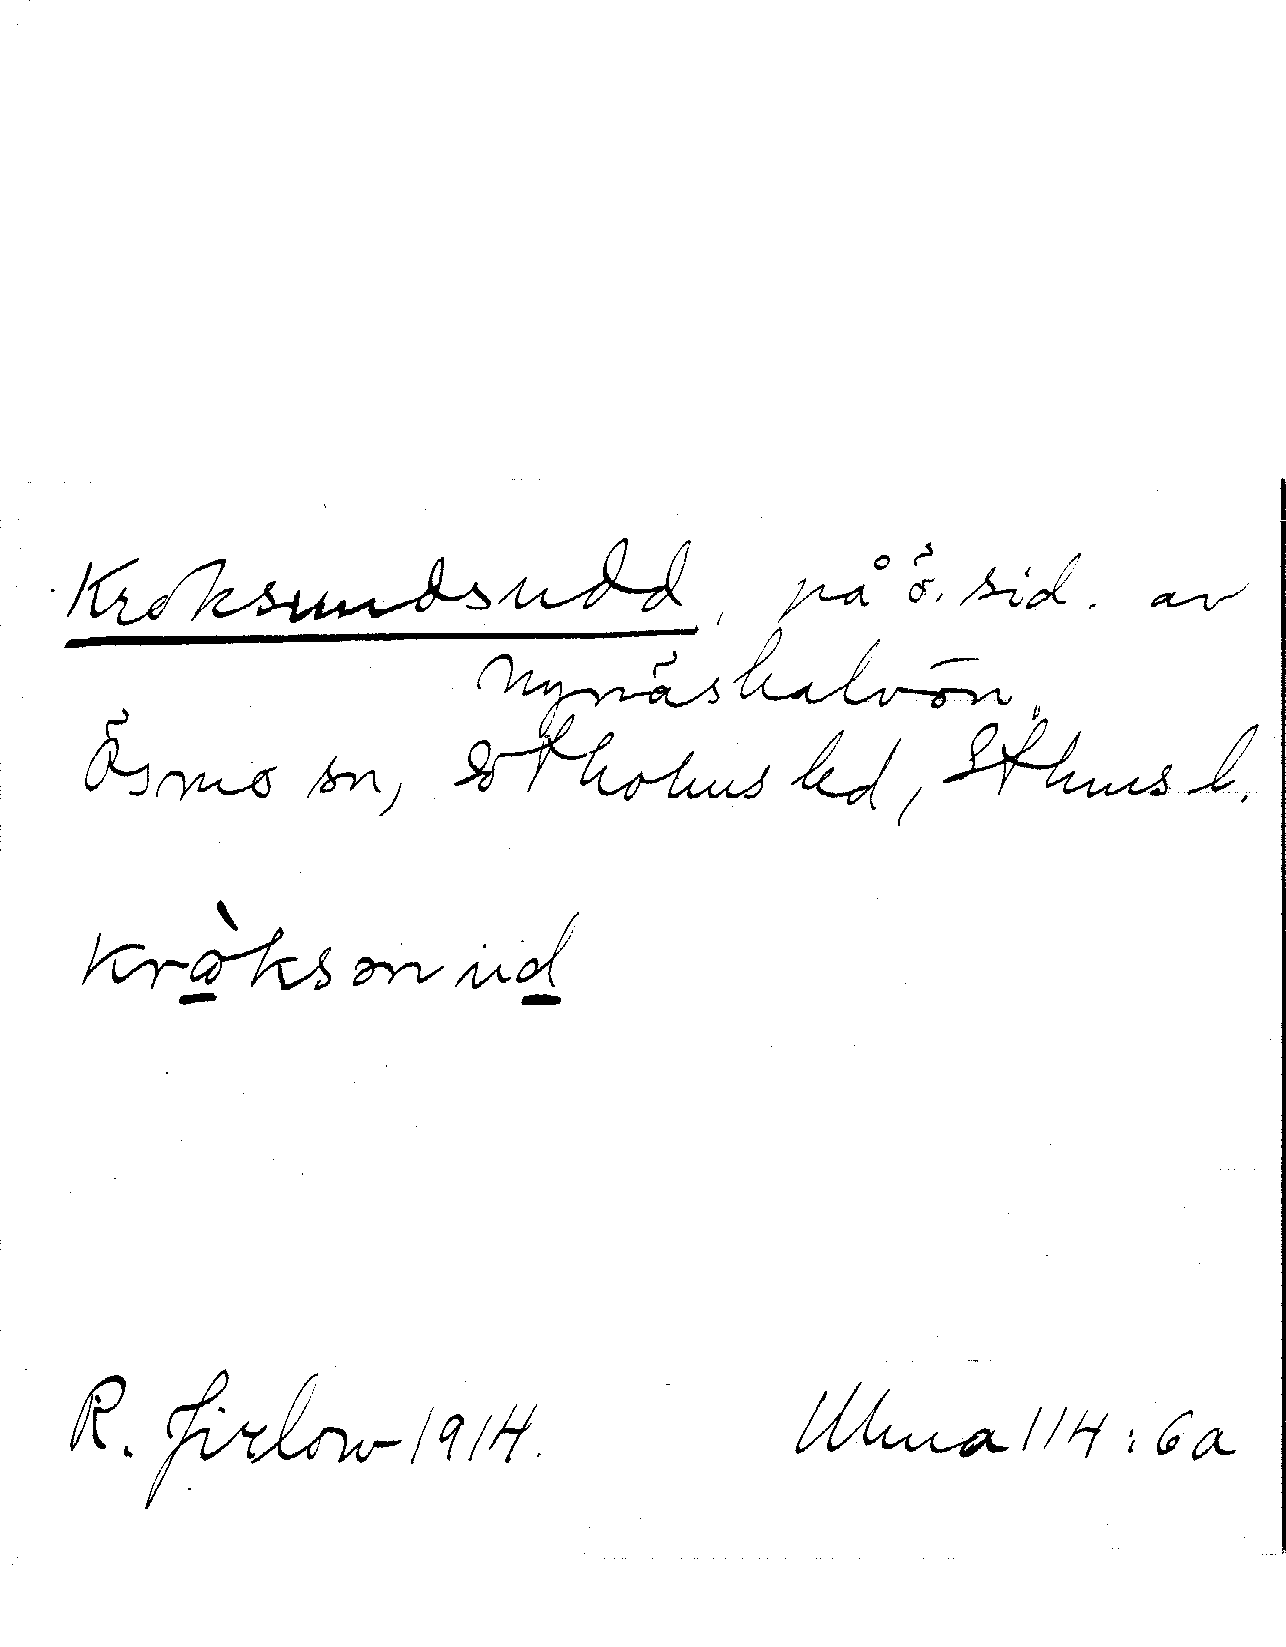 Kroksundsudd, på ö. sid. av
Nynäshalvön,
Ösmo sn, Sotholms hd, Sthms l.
krò̱ksən ud̲
R. Jirlow 1914.
Ulma 114:6a